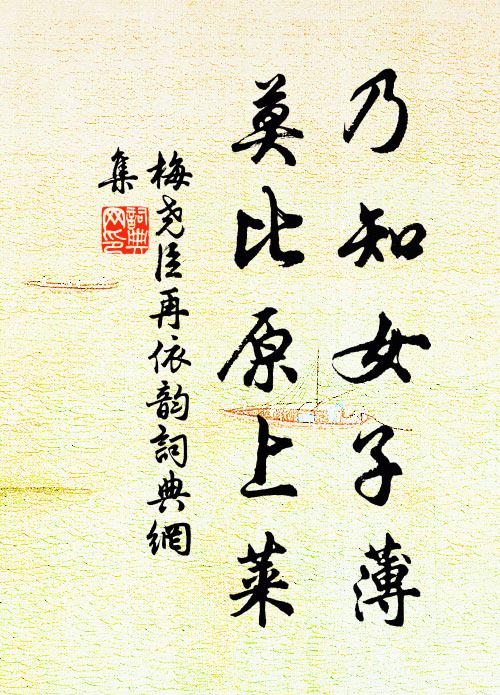 乃知女子薄
莫比原上莱
梅尧臣再依韵詞典網
集
詞典
网印